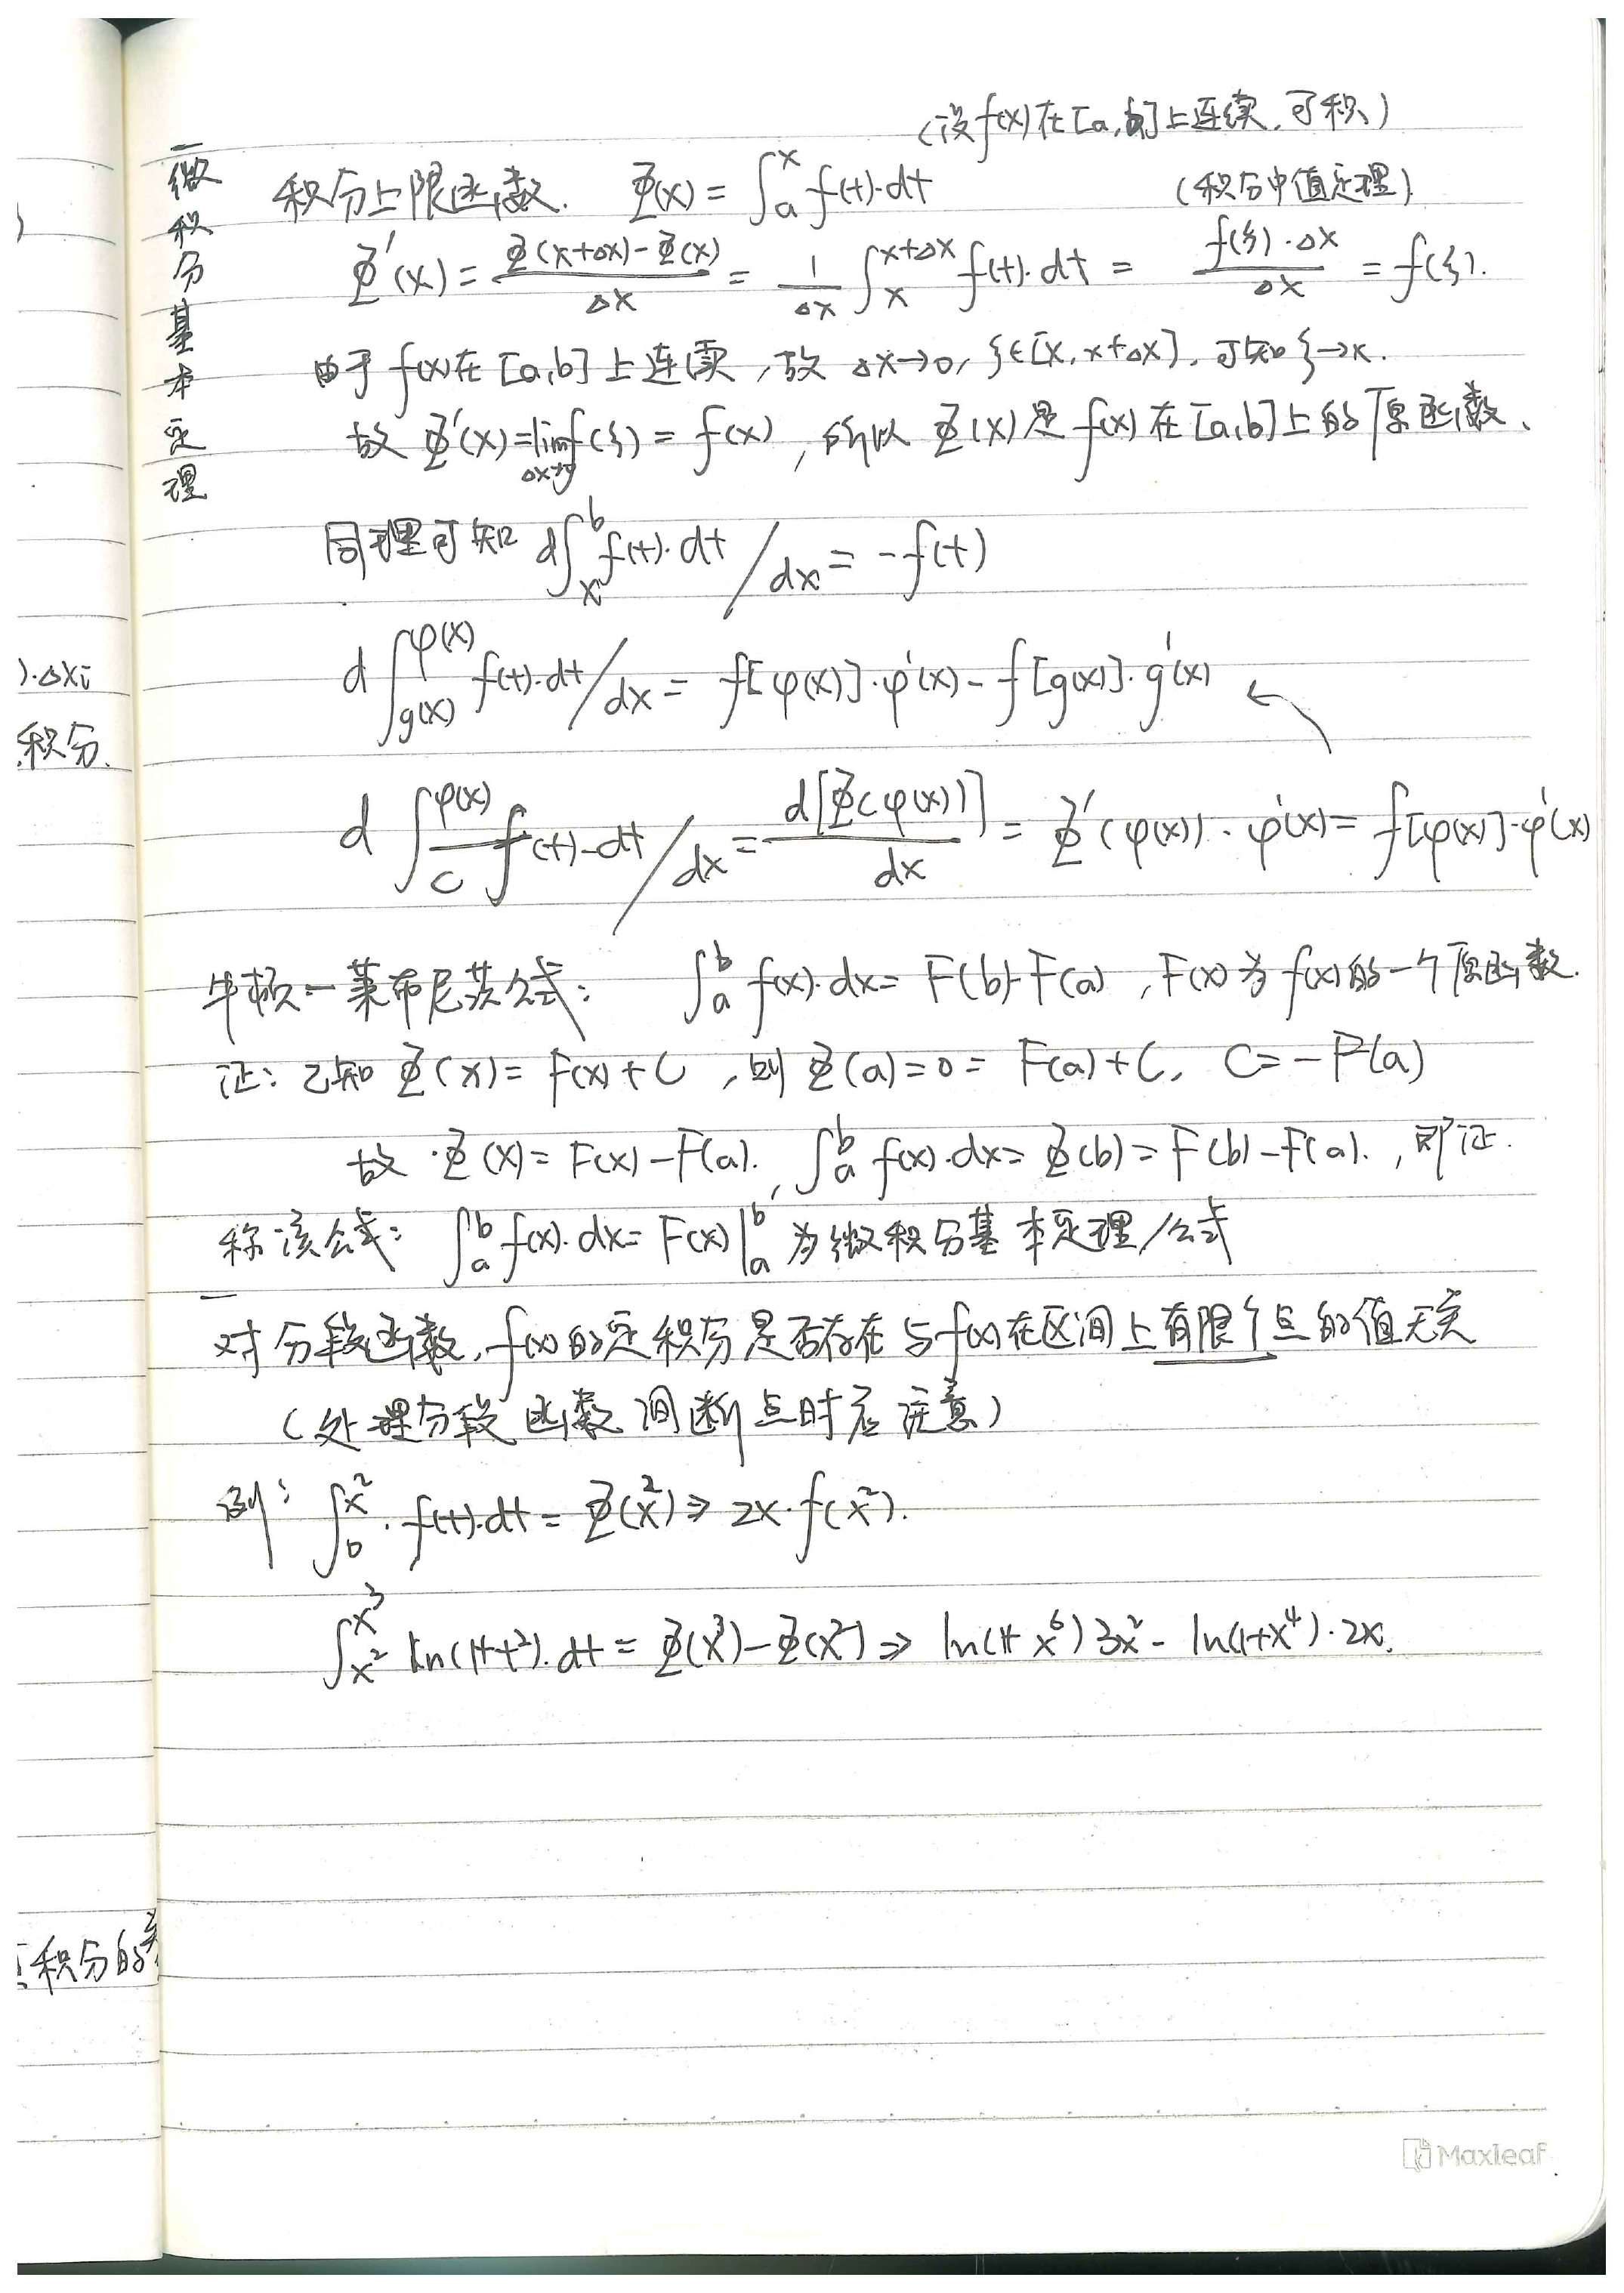 (设f(x)在[a,b]上连续,可积)
微积分基本定理
积分上限函数. Φ(x) = ∫ₐˣ f(t)·dt (积分中值定理)
Φ'(x) = (Φ(x+Δx)-Φ(x))/Δx = 1/Δx ∫ₓ^(x+Δx) f(t)·dt = f(ξ)·Δx/Δx = f(ξ).
由于 f(x)在[a,b]上连续,故 Δx→0, ξ∈[x, x+Δx], 可知 ξ→x.
故 Φ'(x) = lim_(Δx→0) f(ξ) = f(x), 所以 Φ(x)是 f(x)在[a,b]上的原函数.
同理可知 d∫ₓᵇ f(t)·dt/dx = -f(t)
d∫_(g(x))^(φ(x)) f(t)·dt/dx = f[φ(x)]·φ'(x) - f[g(x)]·g'(x) ↖
).Δxi
积分.
d∫_C^(φ(x)) f(t)·dt/dx = d[Φ(φ(x))]/dx = Φ'(φ(x))·φ'(x) = f[φ(x)]·φ'(x)
牛顿-莱布尼茨公式: ∫ₐᵇ f(x)·dx = F(b)-F(a), F(x)为f(x)的一个原函数.
证: 已知 Φ(x) = F(x)+C, 则 Φ(a)=0=F(a)+C, C=-F(a)
故 Φ(x) = F(x)-F(a). , ∫ₐᵇ f(x)·dx = Φ(b) = F(b)-F(a). , 即证.
称该公式: ∫ₐᵇ f(x)·dx = F(x)|ₐᵇ 为微积分基本定理/公式
对分段函数, f(x)的定积分是否存在与f(x)在区间上有限个点的值无关
(处理分段函数间断点时应注意)
例: ∫₀^(x²) f(t)·dt = Φ(x²) ⇒ 2x·f(x²).
∫_(x²)^(x³) ln(1+t²)·dt = Φ(x³)-Φ(x²) ⇒ ln(1+x⁶)3x² - ln(1+x⁴)·2x.
积分的
Maxleaf